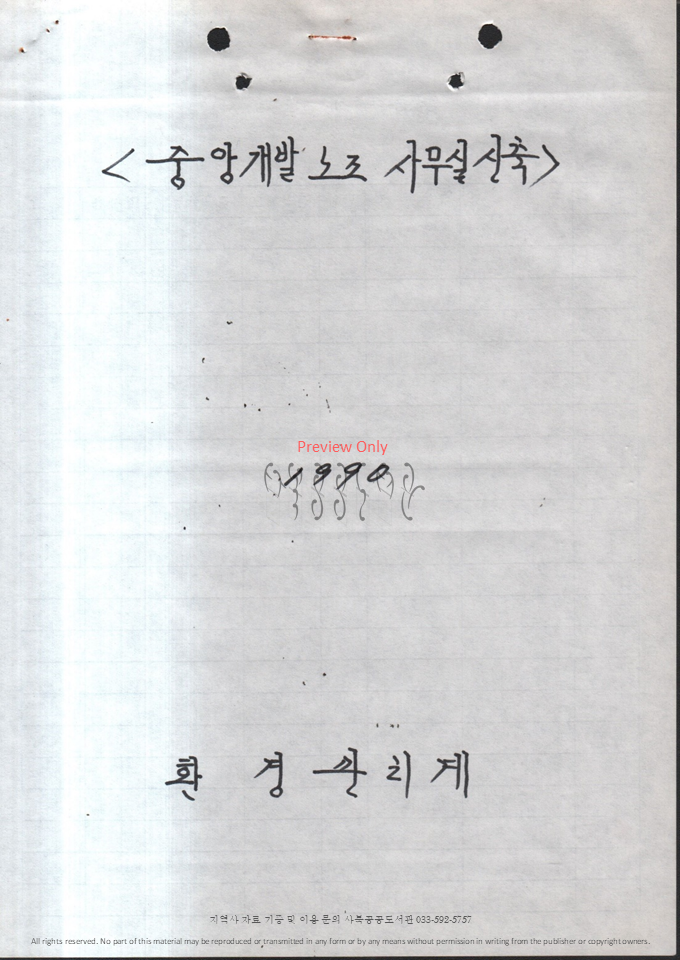 <중앙개발 노조 사무실 신축>
Preview Only
1990
환 경 관 리 계
지역사 자료 기증 및 이용 문의 사북공공도서관 033-592-5757
All rights reserved. No part of this material may be reproduced or transmitted in any form or by any means without permission in writing from the publisher or copyright owners.